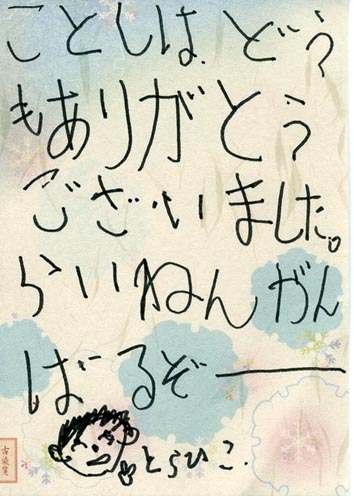 ことしは、どう
もありがとう
ございました。
らいねんがん
ばるぞー
とらひこ.
古染箋